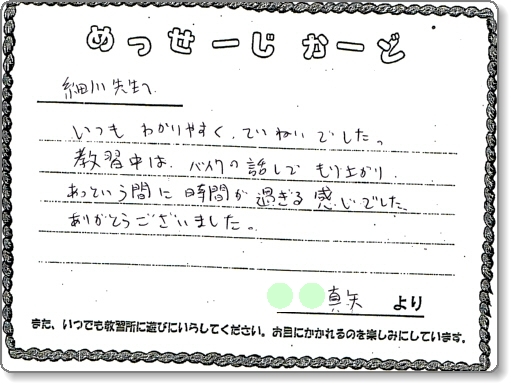 めっせーじ かーど
細川先生へ
いつも わかりやすく、ていねいでした。
教習中は、バイクの話しでもり上がり、
あっという間に時間が過ぎる感じでした。
ありがとうございました。
真矢 より
また、いつでも教習所に遊びにいらしてください。お目にかかれるのを楽しみにしています。